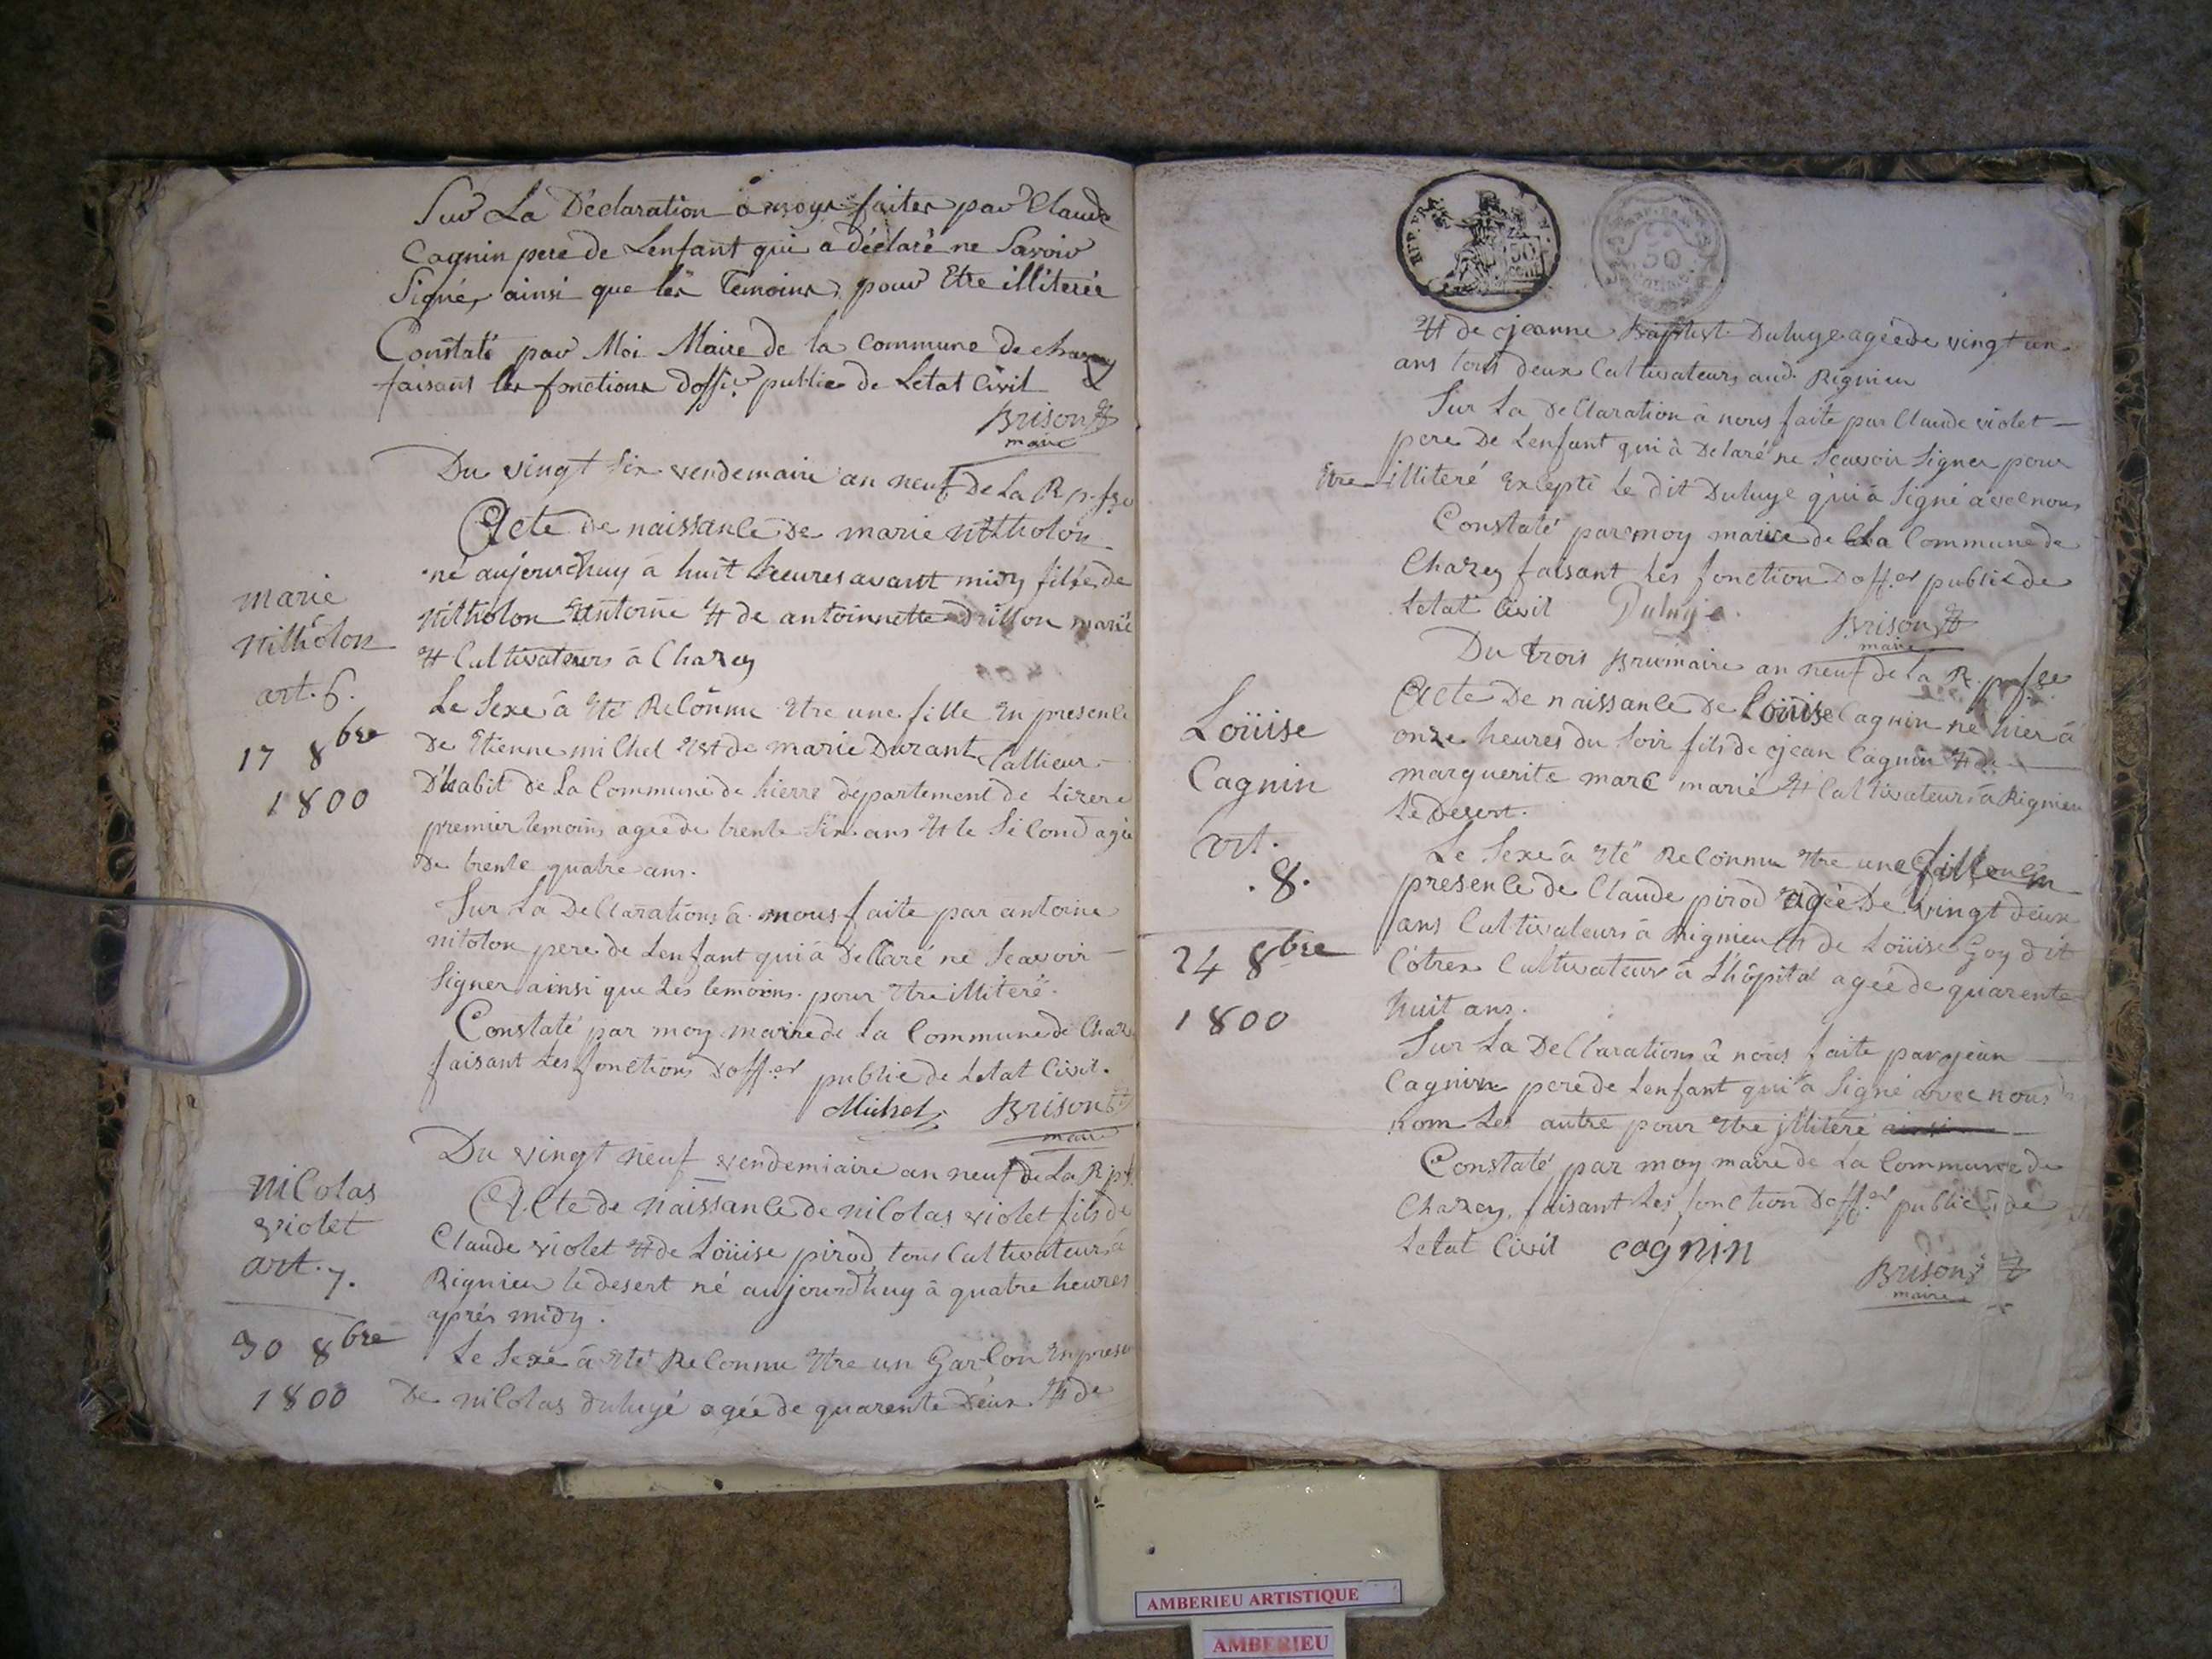 Sur La Déclaration a nous faites par Claude
Cagnin pere de Lenfant qui a déclaré ne Savoir
Signé, ainsi que les Temoins, pour Etre illiteré
Constaté par Moi Maire de la Commune de chazey
faisant les fonctions doffi.er public de Letat Civil
Brison
maire
Du vingt six vendemaire an neuf De La R p. fse
Acte de naissance De marie nitholon
né aujourdhuy à huit heures avant midy fille de
nitholon Antoine Et de antoinnette drillon marié
Et Cultivateurs à Chazey
marie
nitholon
art. 6.
17 8bre
1800
Le Sexe à Eté Reconnu Etre une fille En presence
De Etienne michel Et de marie Durant
D'habit de La Commune de hierre departement de Lizere
premier temoins agée de trente Six ans Et le Second agée
De trente quatre ans.
Sur La Declarations à nous faite par antoine
nitolon pere de Lenfant qui à Déclaré ne Scavoir
Signer ainsi que Les temoins. pour Etre illiteré.
Constaté par moy maire de La Commune de Chaz
faisant Les fonctions Doff.er public de Letat Civil.
Michel Brison
maire
Du vingt neuf vendemiaire an neuf de La R p f
Acte de naissance de nicolas violet fils de
Claude violet Et de Loüise pirod tous Cultivateurs à
Rignieu le desert né aujourdhuy à quatre heures
aprés midy.
nicolas
violet
art. 7.
30 8bre
1800
Le Sexe à Eté Reconnu Etre un Garçon En presen
De nicolas duluyé agée de quarente Deux Et de
REP. FRA.
50
50
Et de jeanne Baptist. Duluye agée de vingt un
ans tous deux Cultivateurs aud. Rignieu
Sur La Declaration à nous faite par Claude violet
pere De Lenfant qui à Delaré ne Scavoir Signer pour
Etre illiteré Excepté Le dit Duluye qui à Signé avec nous
Constaté par moy maire de La Commune de
Chazey faisant Les fonction Doff.er public de
Letat Civil Duluye Brison
maire
Du trois Brumaire an neuf de la R. p. fse
Acte De naissance De Loüise Cagnin né hier à
onze heures du Soir fils de jean Cagnin Et de
marguerite marc marié Et Cultivateurs à Rignieu
Le Desert.
Loüise
Cagnin
art.
.8.
24 8bre
1800
Le Sexe à Eté Reconnu Etre une fille En
presence de Claude pirod agée De vingt deux
ans Cultivateurs à Rignieu Et de Loüise Goy dit
Cotres Cultivateur à L'hôpital agée de quarente
huit ans.
Sur La Declarations à nous faite par jean
Cagnin pere de Lenfant qui à Signé avec nous
nom Les autre pour Etre jlliteré
Constaté par moy maire de La Commune de
Chazey, faisant Les fonction Doff.er public de
Letat Civil cagnin
Brison
maire
AMBERIEU ARTISTIQUE
AMBERIEU